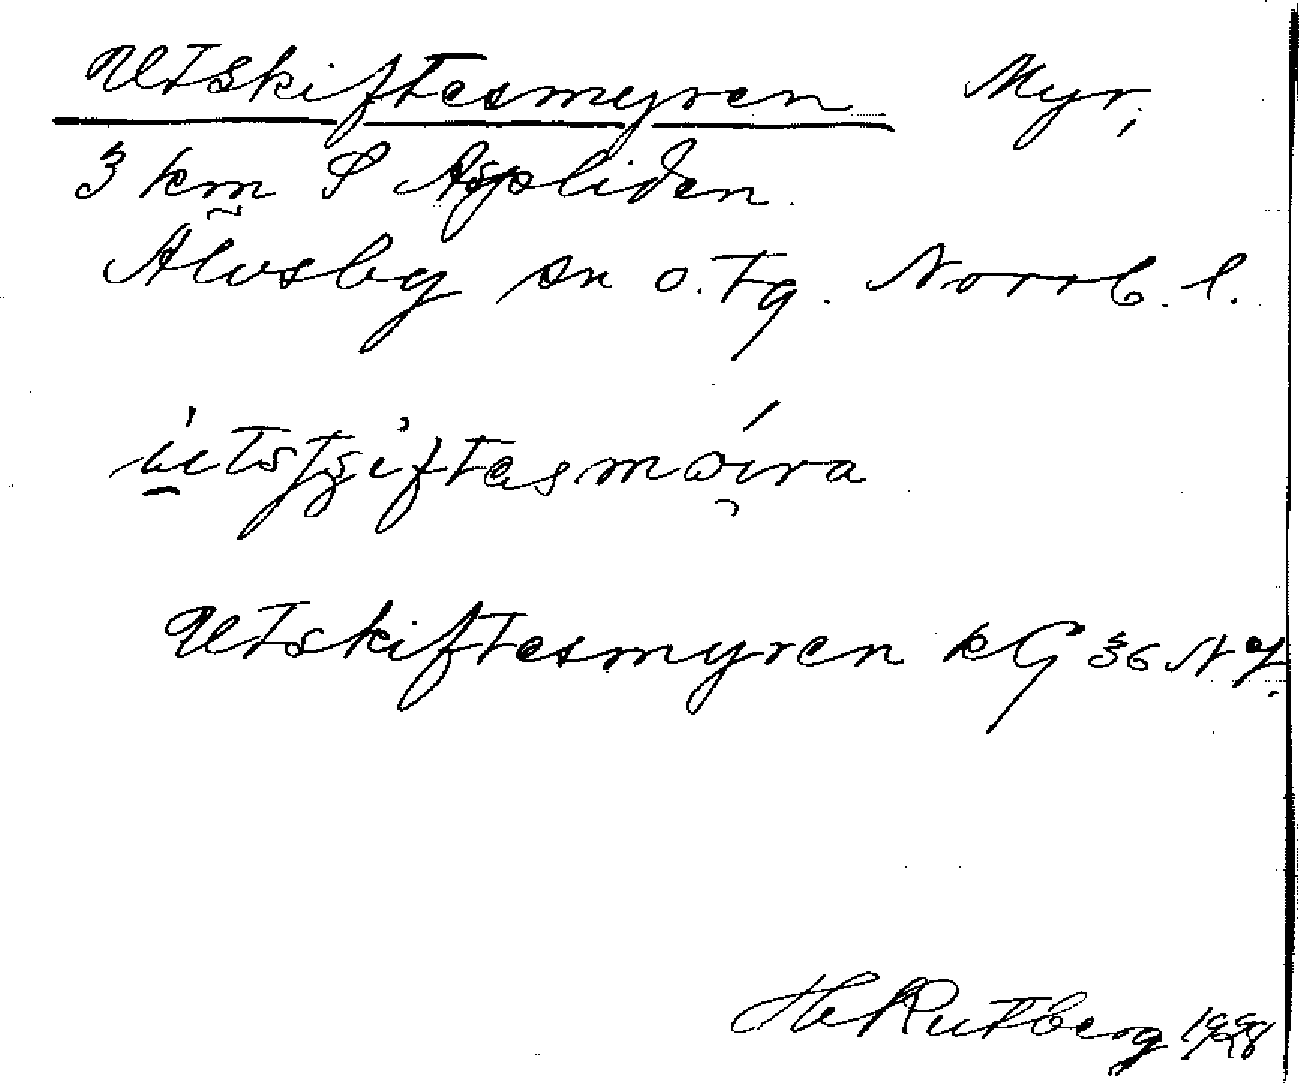 Utskiftesmyren Myr,
3 km S Aspliden.
Älvsby sn o. tg. Norrb. l.
Utskiftesmyren kG 36 NV.
He Rutberg 1928